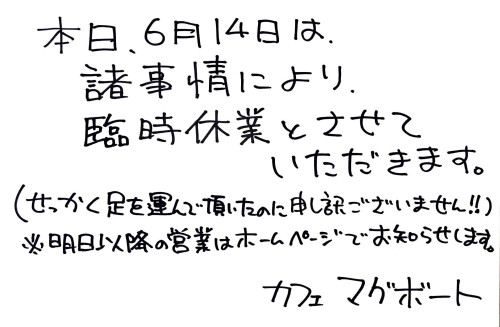 本日、6月14日は、
諸事情により、
臨時休業とさせて
いただきます。
(せっかく足を運んで頂いたのに申し訳ございません!!)
※明日以降の営業はホームページでお知らせします。
カフェ マグボート